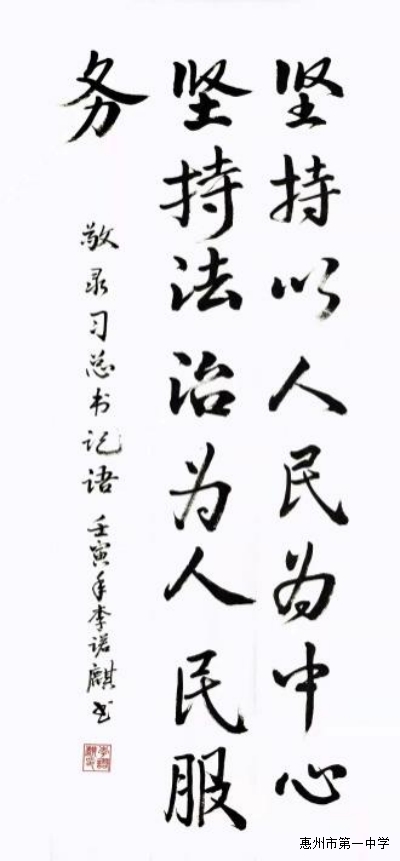 坚持以人民为中心
坚持法治为人民服
务
敬录习总书记语 壬寅年李诺麒书
惠州市第一中学